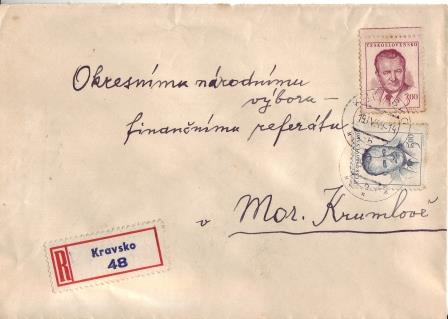 ČESKOSLOVENSKO
3.00
Okresnímu národnímu
výboru –
finančnímu referátu
v Mor. Krumlově
R
Kravsko
48